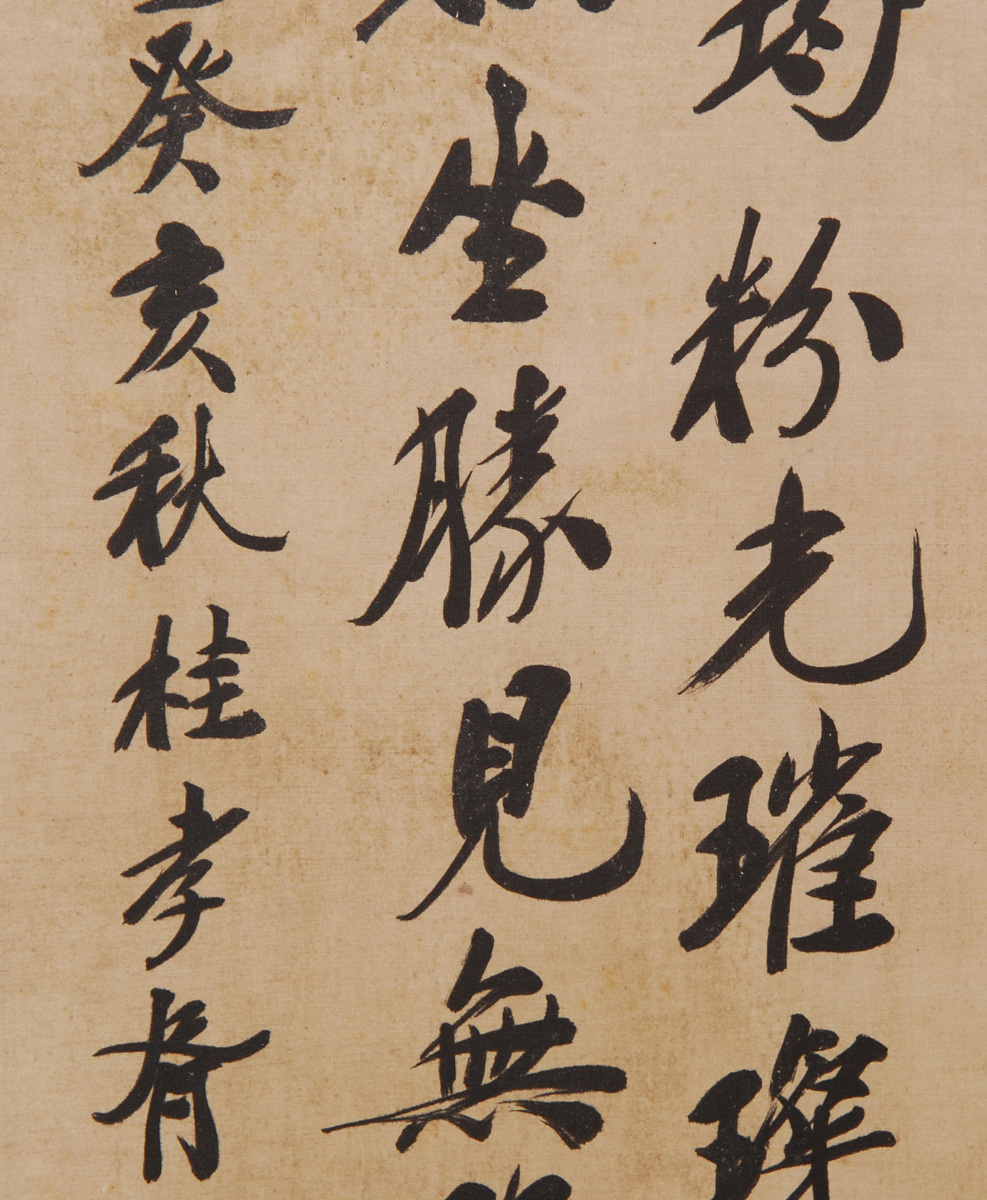 粉光璀璨
坐勝見無
癸亥秋桂孝脊